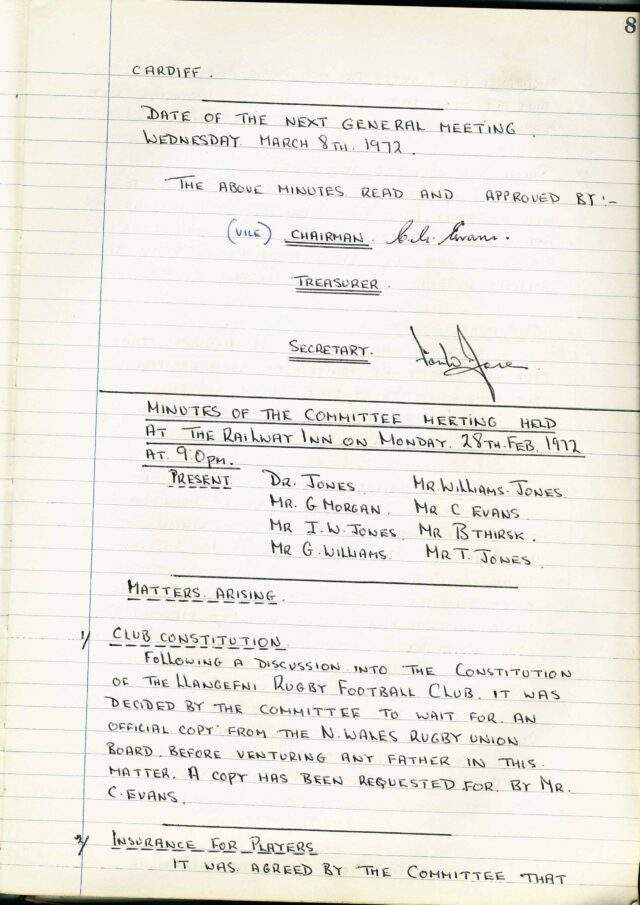 8
CARDIFF.
DATE OF THE NEXT GENERAL MEETING.
WEDNESDAY. MARCH 8TH. 1972.
THE ABOVE MINUTES READ AND APPROVED BY:-
(VILE) CHAIRMAN. C.G. Evans.
TREASURER.
SECRETARY.
MINUTES OF THE COMMITTEE MEETING HELD
AT THE RAILWAY INN ON MONDAY. 28TH. FEB. 1972
AT. 9.0pm.
PRESENT DR. JONES. MR WILLIAMS-JONES
MR. G MORGAN. MR C EVANS
MR I.W. JONES. MR B THIRSK.
MR G. WILLIAMS. MR T. JONES.
MATTERS ARISING.
1/ CLUB CONSTITUTION
FOLLOWING A DISCUSSION INTO THE CONSTITUTION
OF THE LLANGEFNI RUGBY FOOTBALL CLUB. IT WAS
DECIDED BY THE COMMITTEE TO WAIT FOR AN
OFFICIAL COPY FROM THE N. WALES RUGBY UNION
BOARD. BEFORE VENTURING ANY FATHER IN THIS
MATTER. A COPY HAS BEEN REQUESTED FOR. BY MR.
C. EVANS.
2/ INSURANCE FOR PLAYERS
IT WAS AGREED BY THE COMMITTEE THAT